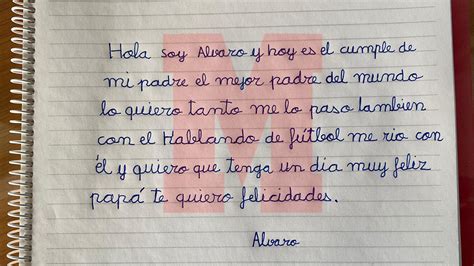 Hola soy Alvaro y hoy es el cumple de
mi padre el mejor padre del mundo
lo quiero tanto me lo paso tambien
con el Hablando de fútbol me rio con
él y quiero que tenga un día muy feliz
papá te quiero felicidades.
Alvaro
M